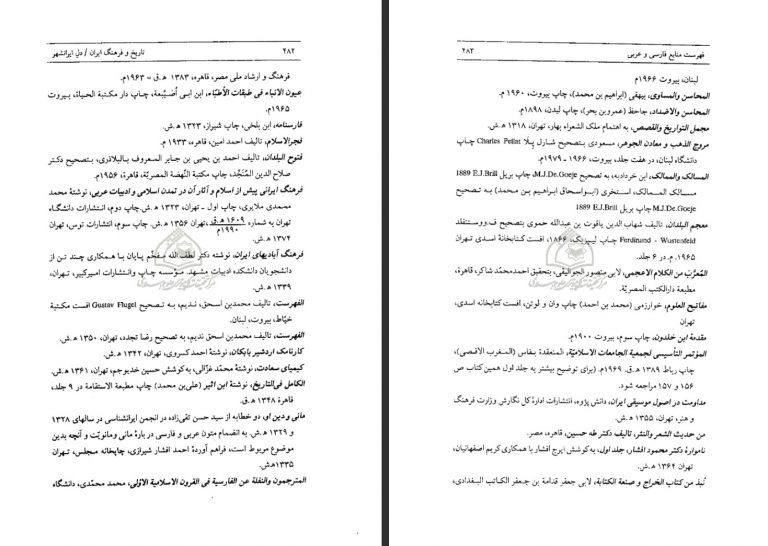 ۴۸۲
تاریخ و فرهنگ ایران / دل ایرانشهر
فرهنگ و ارشاد ملی مصر، قاهره، ۱۳۸۳ ه.ق = ۱۹۶۳م.
عیون الانباء فی طبقات الأطبّاء، ابن ابی أُصَیْبِعة، چاپ دار مکتبة الحیاة، بیروت
۱۹۶۵م.
فارسنامه، ابن بلخی، چاپ شیراز، ۱۳۲۳ ه.ش.
فجرالاسلام، تالیف احمد امین، قاهره، ۱۹۳۳ م.
فتوح البلدان، تالیف احمد بن یحیی بن جابر المعروف بالبلاذری، بتصحیح دکتر
صلاح الدین المُنَجِّد، چاپ مکتبة النّهضة المصریّة، قاهرة، ۱۹۵۶م.
فرهنگ ایرانی پیش از اسلام و آثار آن در تمدن اسلامی و ادبیات عربی، نوشتهٔ محمد
محمدی ملایری، چاپ اول - تهران، ۱۳۲۳ ه.ش. چاپ دوم، انتشارات دانشگاه
تهران به شماره ۱۶۰۹ ه.ق، تهران ۱۳۵۶ ه.ش. چاپ سوم، انتشارات توس، تهران
۱۹۹۰م
۱۳۷۴ ه.ش.
فرهنگ آبادیهای ایران، نوشته دکتر لطف الله مفخّم پایان با همکاری چند تن از
دانشجویان دانشکده ادبیات مشهد. مؤسسه چاپ وانتشارات امیرکبیر، تهران،
۱۳۳۹ ه.ش.
الفهرست، تالیف محمدبن اسحق، ندیم، به تصحیح Gustav Flugel افست مکتبة
خیّاط، بیروت، لبنان.
الفهرست، تالیف محمدبن اسحق ندیم، به تصحیح رضا تجدد، تهران، ۱۳۵۰ ه.ش.
کارنامک اردشیر بابکان، نوشتهٔ احمد کسروی، تهران، ۱۳۴۲ ه.ش.
کیمیای سعادت، نوشتهٔ محمّد غزّالی، به کوشش حسین خدیوجم، تهران، ۱۳۶۱ ه.ش.
الکامل فی‌التاریخ، نوشتهٔ ابن اثیر (علی‌بن محمد) چاپ مطبعة الاستقامة در ۹ جلد،
قاهرة ۱۳۴۸ ه.ق.
مانی و دین او، دو خطابه از سید حسن تقی‌زاده در انجمن ایرانشناسی در سالهای ۱۳۲۸
و ۱۳۲۹ ه.ش. به انضمام متون عربی و فارسی در بارهٔ مانی ومانویّت و آنچه بدین
موضوع مربوط است، فراهم آوردهٔ احمد افشار شیرازی، چاپخانه مجلس، تهران
۱۳۳۵ه‍.ش.
المترجمون والنقلة عن الفارسیة فی القرون الاسلامیة الاوّلی، محمد محمّدی، دانشگاه
۴۸۳
فهرست منابع فارسی و عربی
لبنان، بیروت ۱۹۶۶م
المحاسن والمساوی، بیهقی (ابراهیم بن محمد)، چاپ بیروت، ۱۹۶۰ م.
المحاسن والاضداد، جاحظ (عمروبن بحر)، چاپ لیدن، ۱۸۹۸م.
مجمل التواریخ والقصص، به اهتمام ملک الشعراء بهار، تهران، ۱۳۱۸ ه.ش.
مروج الذهب و معادن الجوهر، مسعودی بتصحیح شارل پلّا Charles Pellat چاپ
دانشگاه لبنان، در هفت جلد، بیروت، ۱۹۶۶ - ۱۹۷۹م.
المسالک والممالک، ابن خردادبه، به تصحیح M.J.De.Goeje چاپ بریل 1889 E.J.Brill
مسالک الممالک، استخری (ابواسحاق ابراهیم بن محمد) به تصحیح
M.J.De.Goeje چاپ بریل 1889 E.J.Brill
معجم البلدان، تالیف شهاب الدین یاقوت بن عبدالله حموی بتصحیح ف.ووستنفلد
Ferdinand - Wustenfeld چاپ لیپزیک، ۱۸۶۶، افست کتابخانهٔ اسدی تهران
۱۹۶۵. م. در ۶ جلد.
المُعرَّب من الکلام الاعجمی، لابی منصور الجوالیقی، بتحقیق احمدمحمّد شاکر، قاهرة،
مطبعة دارالکتب المصریّة.
مفاتیح العلوم، خوارزمی (محمد بن احمد) چاپ وان و لوتن، افست کتابخانه اسدی،
تهران
مقدمة ابن خلدون، چاپ سوم، بیروت ۱۹۰۰م.
المؤتمر التأسیسی لجمعیة الجامعات الاسلامیّة، المنعقدة بفاس (المغرب الاقصی)،
چاپ رباط ۱۳۸۹ ه.ق. ۱۹۶۹م. (برای توضیح بیشتر به جلد اول همین کتاب ص
۱۵۶ و ۱۵۷ مراجعه شود.
مداومت در اصول موسیقی ایران، دانش پژوه، انتشارات ادارهٔ کل نگارش وزارت فرهنگ
و هنر، تهران، ۱۳۵۵ ه.ش.
من حدیث الشعر والنثر، تالیف دکتر طه حسین، قاهره، مصر.
نامواره دکتر محمود افشار، جلد اول، به کوشش ایرج افشار با همکاری کریم اصفهانیان،
تهران ۱۳۶۴ ه.ش.
نُبذ من کتاب الخراج و صنعة الکتابة، لابی جعفر قدامة بن جعفر الکاتب البغدادی،